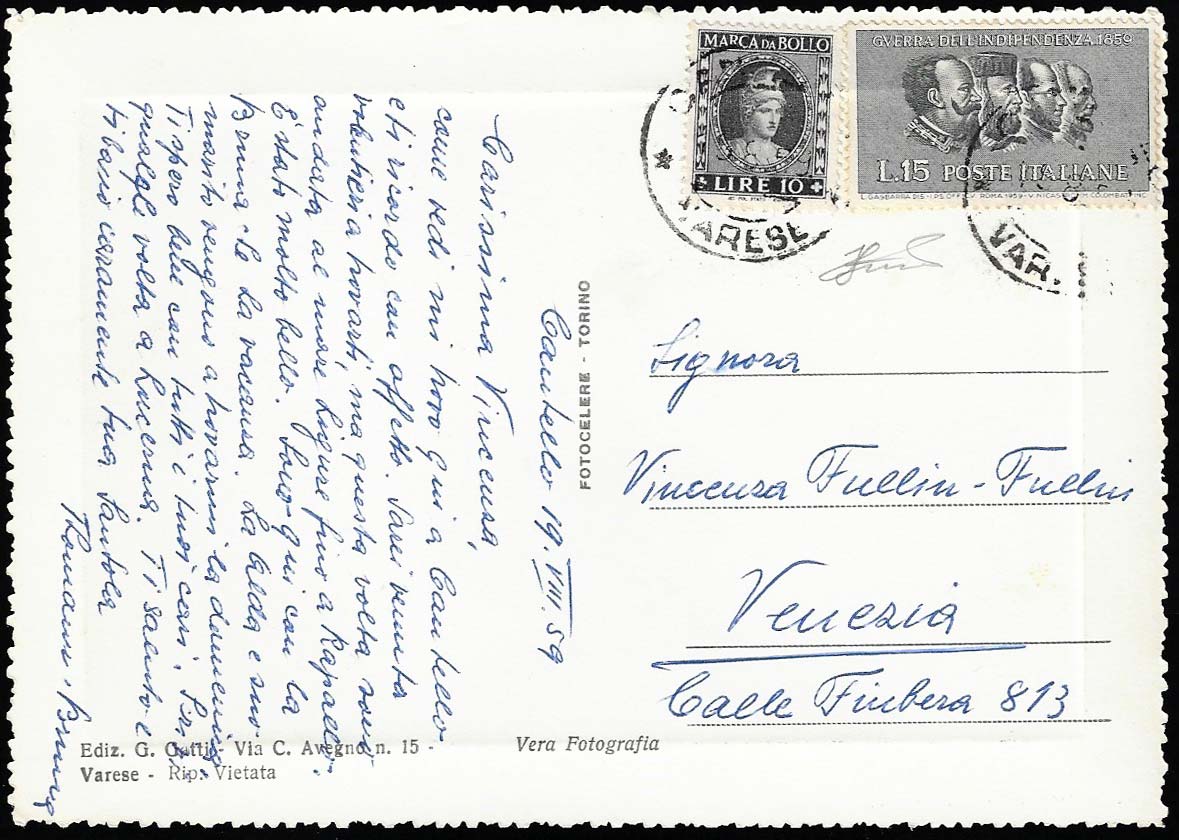 MARCA DA BOLLO
LIRE 10
GVERRA DELL'INDIPENDENZA 1859
L.15 POSTE ITALIANE
VARESE
VAR
Cantello 19.VIII.59
Carissima Vincenza,
come vedi mi trovo qui a Cantello
e ti ricordo con affetto. Sarei venuta
volentieri a trovarti, ma questa volta sono
andata al mare Ligure fino a Rapallo.
È stato molto bello. Sono qui con la
Bruna che ha vacanza. La Alda e suo
marito vengono a trovarmi la domenica
Ti spero bene con tutti i tuoi cari.
qualche volta a Lucerna. Ti saluto e
ti bacio caramente tua Santola
Bruna
FOTOCELERE - TORINO
Signora
Vincenza Fullin-Fullin
Venezia
Calle Fiubera 813
Ediz. G. Gatti - Via C. Avegno n. 15 -
Varese - Rip. Vietata
Vera Fotografia